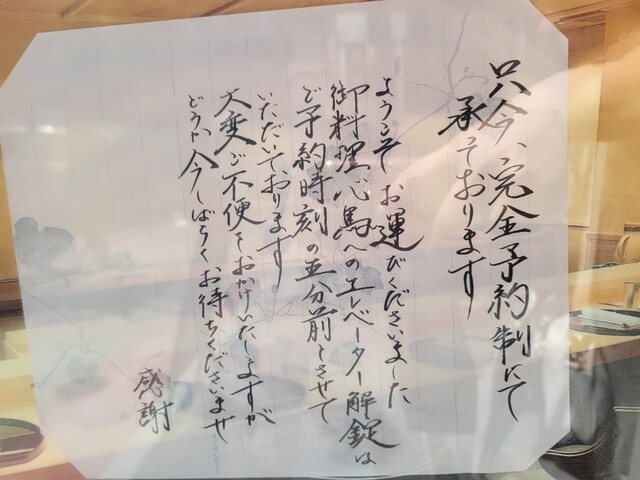 只今、完全予約制にて
承っております
ようこそお運びくださいました
御料理心馬へのエレベーター解錠は
ご予約時刻の五分前とさせて
いただいております
大変ご不便をおかけいたしますが
どうか今しばらくお待ちくださいませ
感謝